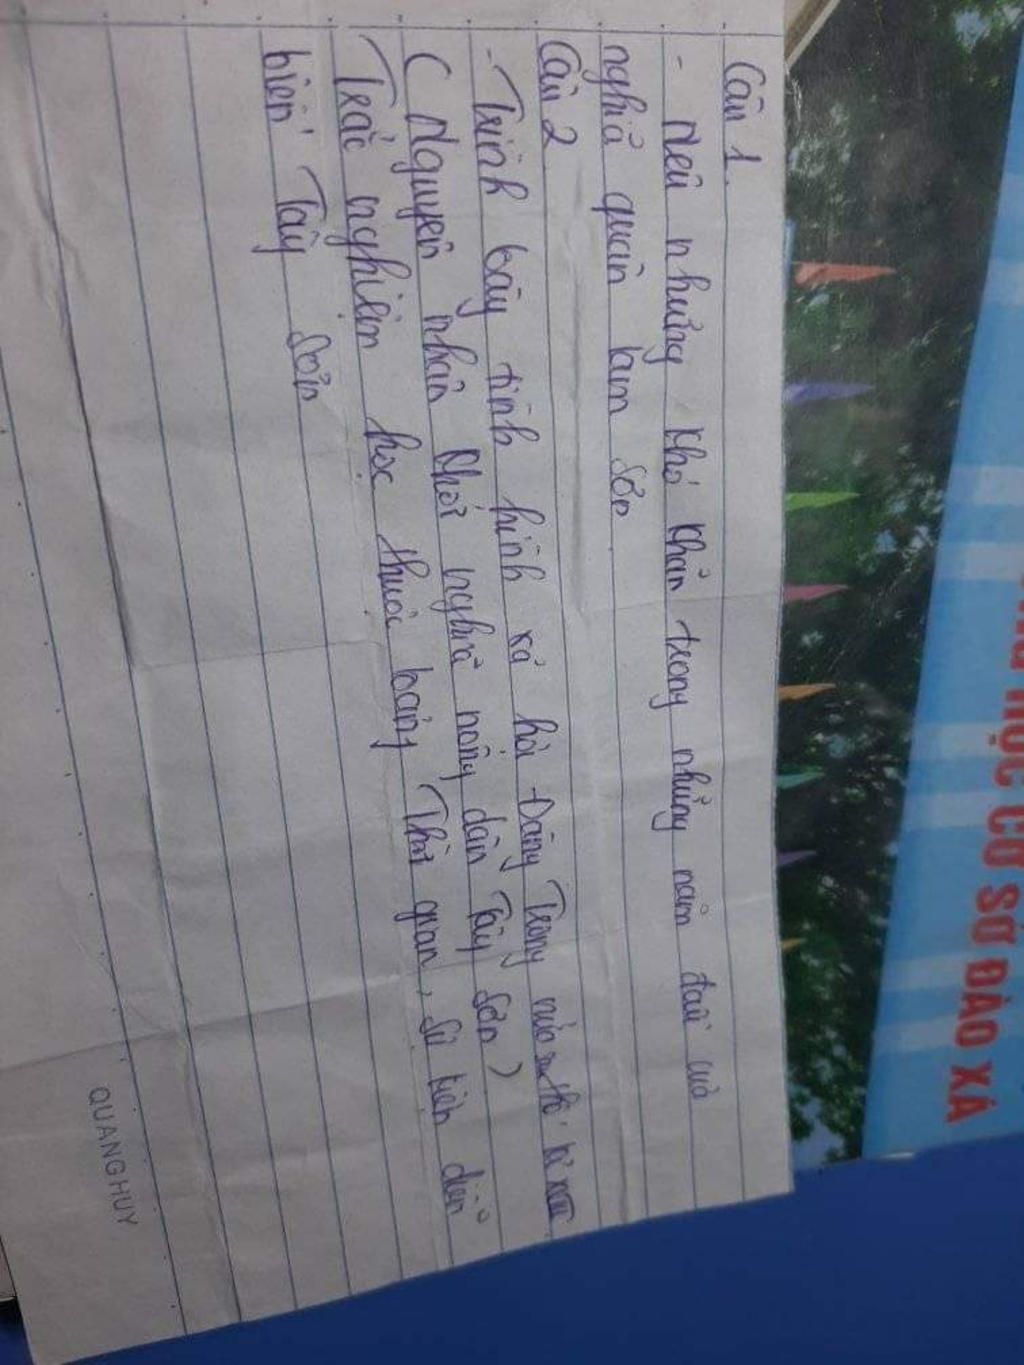 Câu 1.
- Nêu những khó khăn trong những năm đầu của
nghĩa quân Lam Sơn
Câu 2
- Trình bày tình hình xã hội Đàng Trong nửa sau thế kỉ XVIII
( Nguyên nhân khởi nghĩa nông dân Tây Sơn )
Trắc nghiệm học thuộc bảng Thời gian, sự kiện diễn
biến Tây Sơn
QUANGHUY
HỌC CƠ SỞ ĐÀO XÁ